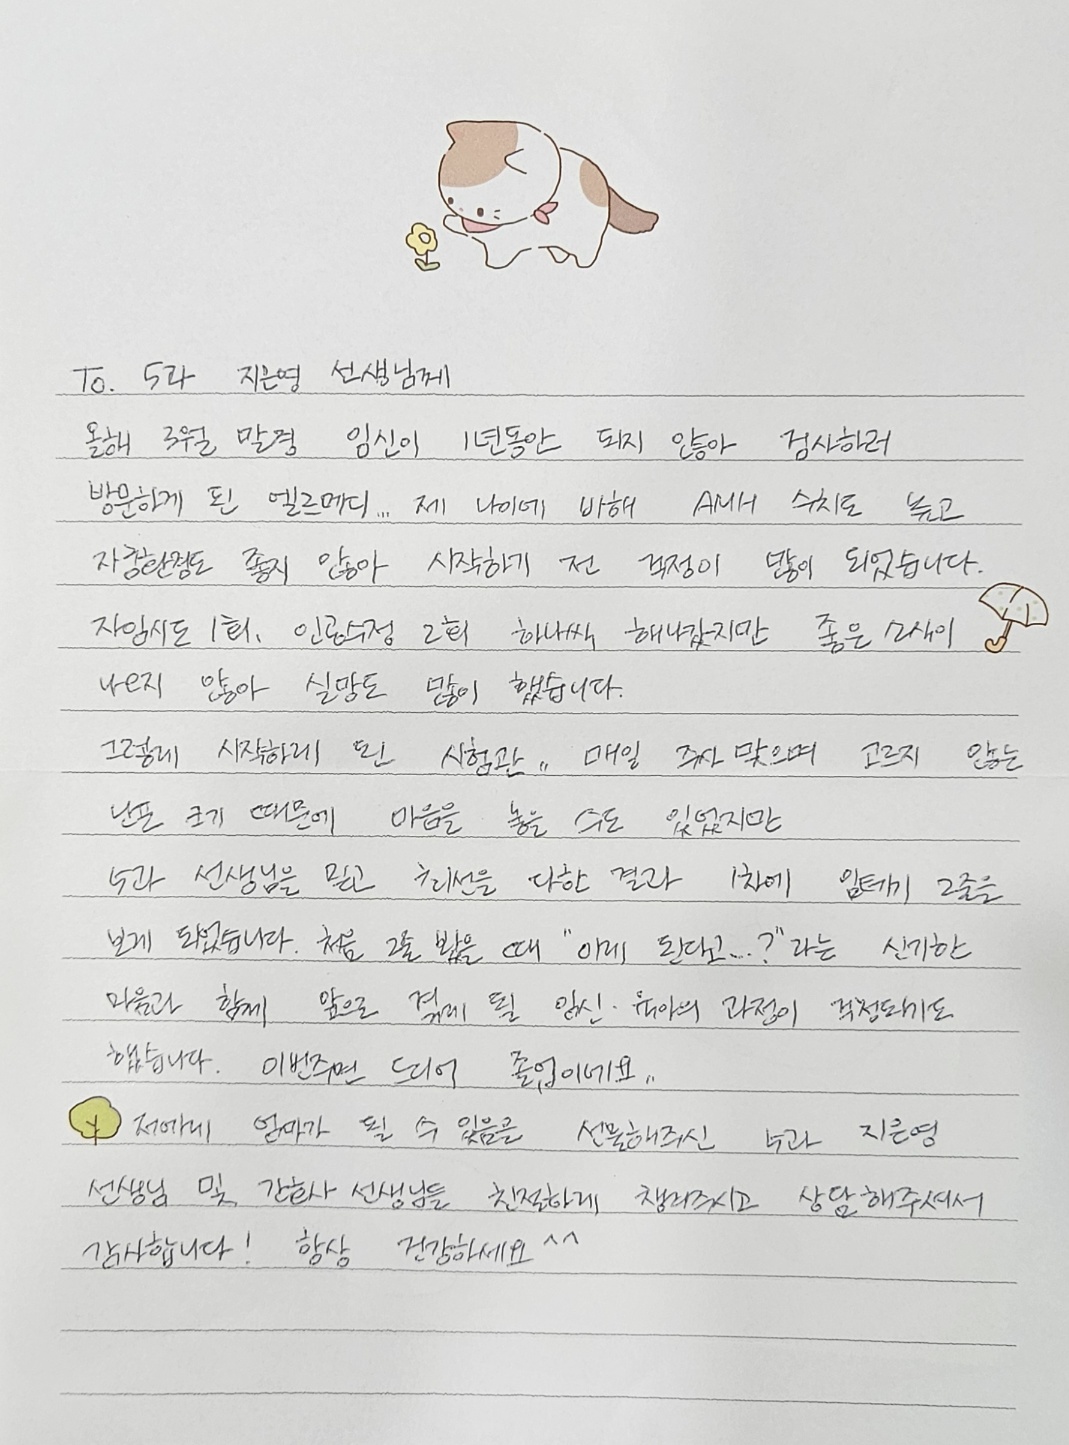 To. 5과 지은영 선생님께
올해 3월 말경 임신이 1년동안 되지 않아 검사하러
방문하게 된 엘르메디... 제 나이에 비해 AMH 수치도 높고
자궁환경도 좋지 않아 시작하기 전 걱정이 많이 되었습니다.
자임시도 1회, 인공수정 2회 하나씩 해나갔지만 좋은 소식이
나오지 않아 실망도 많이 했습니다.
그렇게 시작하게 된 시험관.. 매일 주사 맞으며 고르지 않는
난포 크기 때문에 마음을 놓을 수도 없었지만
5과 선생님을 믿고 최선을 다한 결과 1차에 임테기 2줄을
보게 되었습니다. 처음 2줄 봤을 때 "이게 된다고...?"라는 신기한
마음과 함께 앞으로 겪게 될 임신·육아의 과정이 걱정되기도
했습니다. 이번주면 드디어 졸업이네요..
저에게 엄마가 될 수 있음을 선물해주신 5과 지은영
선생님 및 간호사 선생님들 친절하게 챙겨주시고 상담해주셔서
감사합니다! 항상 건강하세요^^